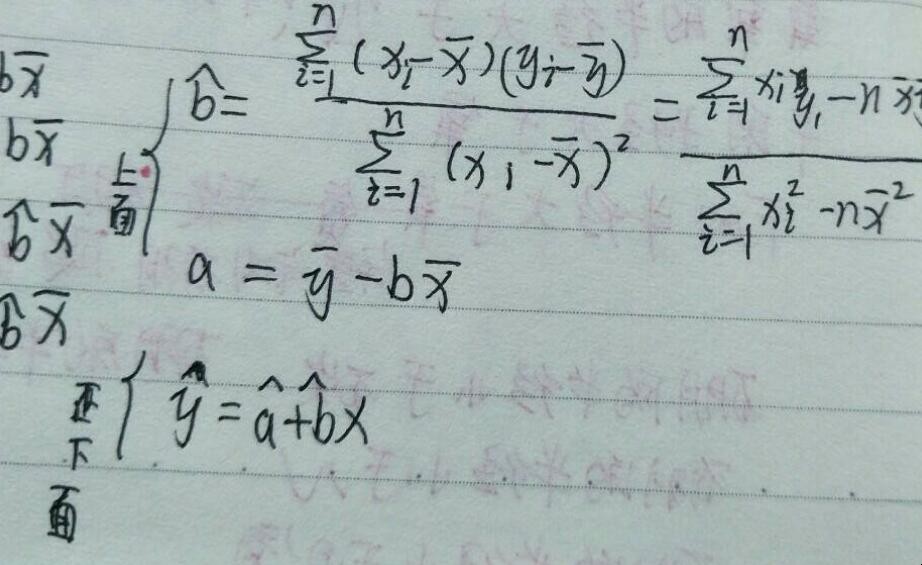 bx̄
bx̄
b̂x̄
b̂x̄
上面
b̂ = \frac{\sum_{i=1}^{n} (x_i - x̄)(y_i - ȳ)}{\sum_{i=1}^{n} (x_i - x̄)^2} = \frac{\sum_{i=1}^{n} x_i y_i - n x̄}{\sum_{i=1}^{n} x_i^2 - n x̄^2}
a = ȳ - bx̄
ŷ = â + b̂x
下
面